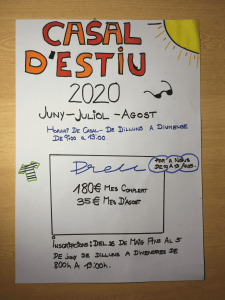 CASAL
D'ESTIU
2020
JUNY-JULIOL-AGOST
HORARI DE CASAL- DE DILLUNS A DIVENDRES
DE 9:00 A 13:00.
Preu
PER A NENS
180€ MES COMPLERT
35€ MES D'AGOST
INSCRIPCIONS: DEL 25 DE MAIG FINS AL 5
DE JUNY DE DILLUNS A DIVENDRES DE
8:00H A 19:00H.